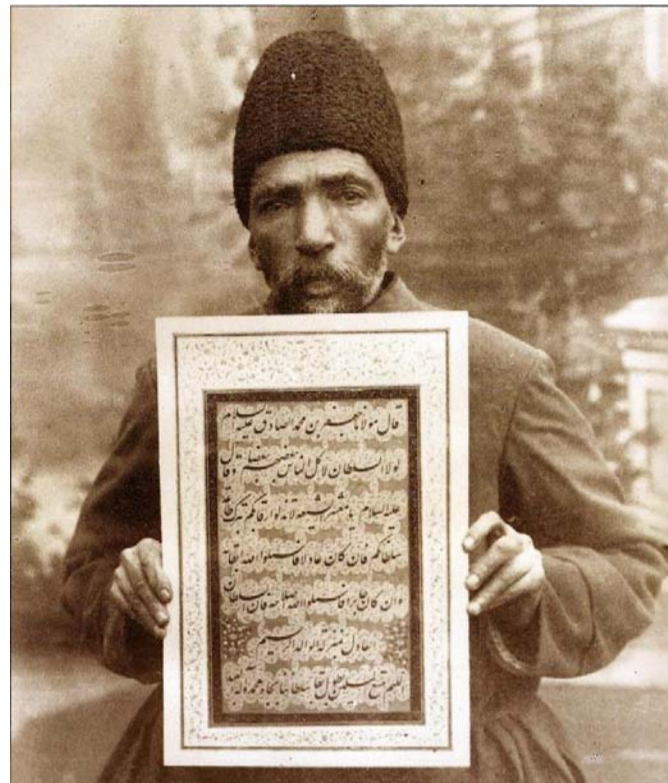 قال مولانا جعفر بن محمد الصادق علیه السلام
لولا السلطان لاکل الناس بعضهم بعضا و قال
علیه السلام یا معشر الشیعه لا تذلوا رقابکم بترک طاعة
سلطانکم فان کان عادلا فاسئلوا الله ابقائه
وان کان جابرا فاسئلوا الله اصلاحه فان السلطان
العادل بمنزلة الوالد الرحیم
اللهم متع المسلمین بطول بقاء سلطاننا بجاه محمد وآله